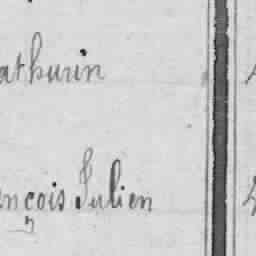 athurin
nçois Julien